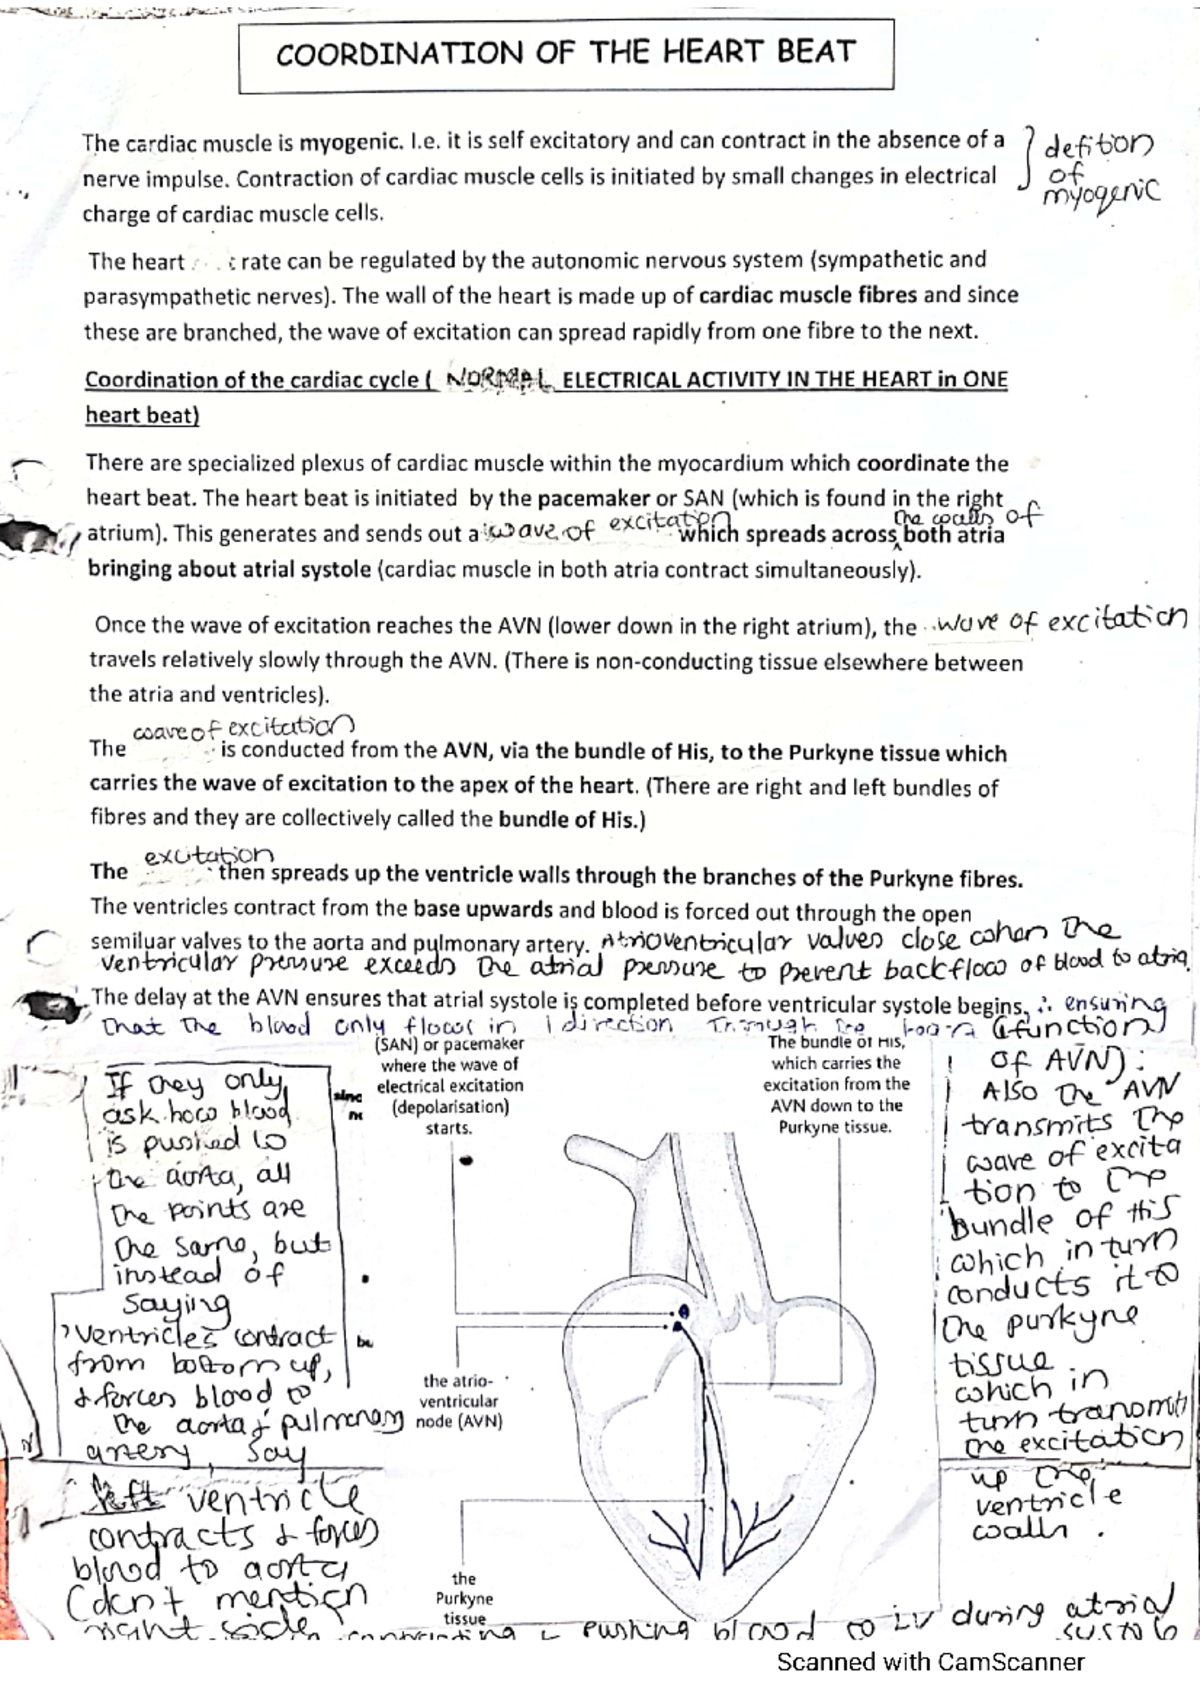 COORDINATION OF THE HEART BEAT
The cardiac muscle is myogenic. I.e. it is self excitatory and can contract in the absence of a
nerve impulse. Contraction of cardiac muscle cells is initiated by small changes in electrical
charge of cardiac muscle cells.
defition
of
myogenic
The heart rate can be regulated by the autonomic nervous system (sympathetic and
parasympathetic nerves). The wall of the heart is made up of cardiac muscle fibres and since
these are branched, the wave of excitation can spread rapidly from one fibre to the next.
Coordination of the cardiac cycle ( NORMAL ELECTRICAL ACTIVITY IN THE HEART in ONE
heart beat)
There are specialized plexus of cardiac muscle within the myocardium which coordinate the
heart beat. The heart beat is initiated by the pacemaker or SAN (which is found in the right
atrium). This generates and sends out a wave of excitation which spreads across the walls of both atria
bringing about atrial systole (cardiac muscle in both atria contract simultaneously).
Once the wave of excitation reaches the AVN (lower down in the right atrium), the wave of excitation
travels relatively slowly through the AVN. (There is non-conducting tissue elsewhere between
the atria and ventricles).
The wave of excitation is conducted from the AVN, via the bundle of His, to the Purkyne tissue which
carries the wave of excitation to the apex of the heart. (There are right and left bundles of
fibres and they are collectively called the bundle of His.)
The excitation then spreads up the ventricle walls through the branches of the Purkyne fibres.
The ventricles contract from the base upwards and blood is forced out through the open
semiluar valves to the aorta and pulmonary artery. Atrioventricular valves close when the
ventricular pressure exceeds the atrial pressure to prevent backflow of blood to atria.
The delay at the AVN ensures that atrial systole is completed before ventricular systole begins, ∴ ensuring
that the blood only flows in 1 direction through the (function
of AVN):
Also the AVN
transmits the
wave of excita
tion to the
bundle of His
which in turn
conducts it to
the purkyne
tissue
which in
turn transmit
the excitation
up the
ventricle
walls.
If they only
ask how blood
is pushed to
the aorta, all
the points are
the same, but
instead of
saying
'ventricles contract
from bottom up,
& forces blood to
the aorta & pulmonary
artery, say
left ventricle
contracts & forces
blood to aorta
(don't mention
right side
(SAN) or pacemaker
where the wave of
electrical excitation
(depolarisation)
starts.
The bundle of His,
which carries the
excitation from the
AVN down to the
Purkyne tissue.
the atrio-
ventricular
node (AVN)
the
Purkyne
tissue
contracting & pushing blood to LV during atrial
systole
Scanned with CamScanner